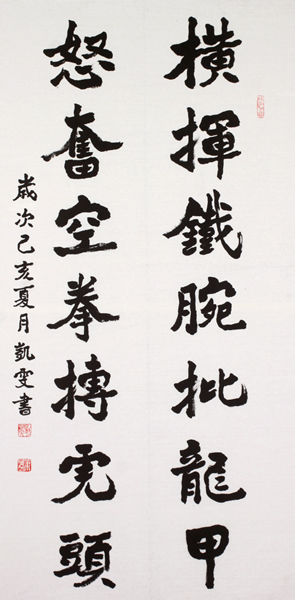 橫揮鐵腕批龍甲
怒奮空拳搏虎頭
歲次己亥夏月凱雯書